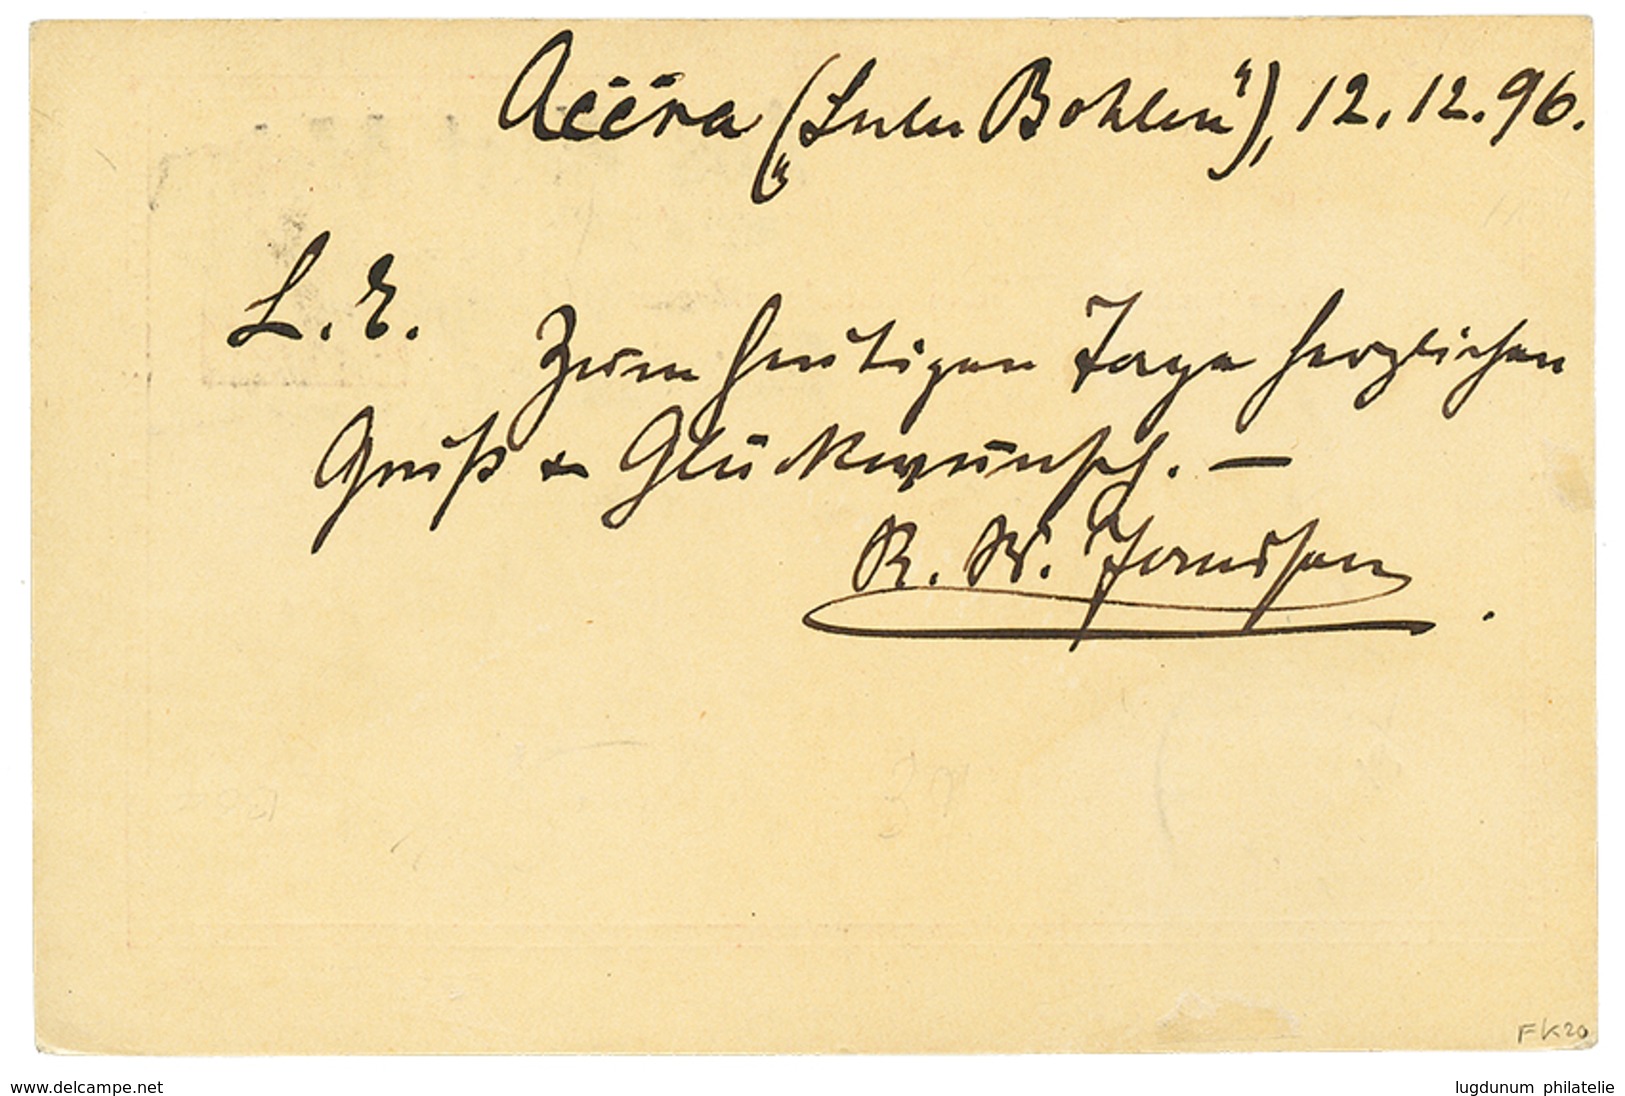 Accra („Lulu Bohlen“), 12.12.96.
L. E.
Zum heutigen Tage herzlichen
Gruß & Glückwunsch. —
R. W.
FK20
www.delcampe.net
lugdunum philatelie